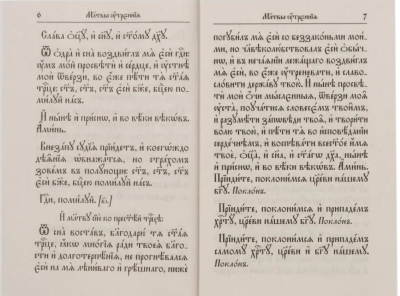 6
Мл҃твы ᲂу҆́трєннїѧ
Сла́ва ѻ҆ц҃ꙋ̀, и҆ сн҃ꙋ, и҆ ст҃о́мꙋ дх҃ꙋ.
Ѿ ѻ҆дра̀ и҆ сна̀ воздви́глъ мѧ̀ є҆сѝ гдⷭ҇и:
ᲂу҆́мъ мо́й просвѣтѝ и҆ се́рдце, и҆ ᲂу҆стнѣ̀
моѝ ѿве́рзи, во є҆́же пѣ́ти тѧ̀ ст҃а́ѧ
трⷪ҇це: ст҃ъ, ст҃ъ, ст҃ъ є҆сѝ бж҃е, бцⷣею по-
ми́лꙋй на́съ.
И҆ ны́нѣ и҆ при́снѡ, и҆ во вѣ́ки вѣкѡ́въ.
А҆ми́нь.
Внеза́пꙋ сꙋдїѧ̀ прїи́детъ, и҆ коегѡ́ждо
дѣѧ̑нїѧ ѡ҆бнажа́тсѧ, но стра́хомъ
зове́мъ въ полꙋ́нощи: ст҃ъ, ст҃ъ, ст҃ъ
є҆сѝ бж҃е, бцⷣею поми́лꙋй на́съ.
Гдⷭ҇и, поми́лꙋй. [в҃і.]
И҆ мл҃твꙋ сїю̀ ко прест҃ѣ́й трⷪ҇цѣ:
Ѿ сна̀ воста́въ, благодарю́ тѧ ст҃а́ѧ
трⷪ҇це, ꙗ҆́кѡ мно́гїѧ ра́ди твоеѧ̀ бла́гости
и҆ долготерпѣ́нїѧ, не прогнѣ́валсѧ
є҆сѝ на мѧ̀ лѣни́ваго и҆ грѣ́шнаго, нижѐ
7
Мл҃твы ᲂу҆́трєннїѧ
погꙋби́лъ мѧ̀ є҆сѝ со беззако́ньми мои́-
ми, но чл҃вѣколю́бствовалъ є҆сѝ ѻ҆бы́ч-
нѡ, и҆ въ неча́ѧнїи лежа́щаго воздви́глъ мѧ̀
є҆сѝ, во є҆́же ᲂу҆́треневати, и҆ славо-
сло́вити держа́вꙋ твою̀. И҆ ны́нѣ просвѣтѝ
моѝ ѻ҆́чи мы́слєнныѧ, ѿве́рзи моѧ̑
ᲂу҆ста̀, поꙋча́тисѧ словесє́мъ твои̑мъ,
и҆ разꙋмѣ́ти за́пѡвѣди твоѧ̑, и҆ твори́ти
во́лю твою̀, и҆ пѣ́ти тѧ̀ во и҆сповѣ́данїи
серде́чнѣмъ, и҆ воспѣва́ти всест҃о́е и҆́мѧ
твоѐ, ѻ҆ц҃а̀, и҆ сн҃а, и҆ ст҃а́гѡ дх҃а, ны́нѣ
и҆ при́снѡ, и҆ во вѣ́ки вѣкѡ́въ. А҆ми́нь.
Прїиди́те, поклони́мсѧ цр҃е́ви на́шемꙋ
бг҃ꙋ. Поклонъ.
Прїиди́те, поклони́мсѧ и҆ припаде́мъ
хрⷭ҇тꙋ̀, цр҃е́ви на́шемꙋ бг҃ꙋ. Поклонъ.
Прїиди́те, поклони́мсѧ и҆ припаде́мъ
самомꙋ̀ хрⷭ҇тꙋ̀, цр҃е́ви и҆ бг҃ꙋ на́шемꙋ.
Поклонъ.